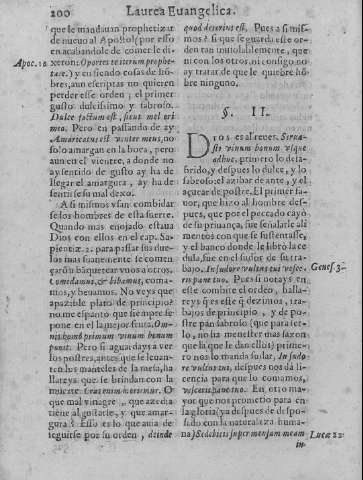 200 Laurea Euangelica.
que le mandauan prophetizar
de nueuo al Apostol (por esso
en acabandole de comer le di-
Apoc. 10 xeron: Oportet te iterum prophe-
tare.) y en siendo cosas de hõ-
bres, aun escriptas no quieren
perder esse orden, el primer
gusto dulcissimo y sabroso.
Dulce factum est, sicut mel ori
meo. Pero en passando de ay
Amaricatus est venter meus, no
solo amargan en la boca, pero
aun en el vientre, a donde no
ay sentido de gusto ay ha de
llegar el amargora, ay ha de
sentirse su mal dexo.
A si mismos vsan combidar
se los hombres de esta suerte.
Quando mas enojado estaua
Dios con ellos en el cap. Sa-
pientiæ. 2. para passar sus due-
los mas suauemente se comen-
çarõ a bãquetear vnos a otros.
Comedamus, & bibamus, coma-
mos, y benamos. No veys que
apazible plato de principio?
no me espanto que siempre se
pone en el la mejor fruta. Om-
nis homo primum vinum bonum
ponit. Pero si aguardays a ver
los postres, antes que se leuan-
ten los manteles de la mesa, ha
llareys que se brindan con la
muerte. Cras enim moriemur. O
que mal vinagre, que azeda
tiene al gustarle, y que amar-
gura? Esso es lo que auia de
seguirse por su orden, deinde
quod deterius est. Pues a si mis-
mos? a si que le guarda este or-
den tan inuiolablemente, que
ni con los otros, ni contigo no
ay tratar de que le quiebre hõ-
bre ninguno.
§. II.
DIOS es al reues. Serua-
sti vinum bonum vsque
adhuc, primero lo desa-
brido, y despues lo dulce, y lo
sabroso: el azibar de ante, y el
açucar de postre. El primer fa-
uor, que hizo al hombre des-
pues, que por el peccado cayó
de su priuança, fue señalarle ali
mentos con que se sustentasse,
y el banco donde se libró la ce
dula, fue en el sudor de su tra-
bajo. In sudore vultus tui vesce- Genes. 3.
ris pane tuo. Pues si notays en
este combite el orden, halla-
reys q̃ es este q̃ dezimos, tra-
bajos de principio, y de po-
stre pan sabroso (que para ser-
lo, no ha menester mas sazon
que la que le dan ellos) prime-
ro nos lo manda sudar, In sudo
re vultus tui, despues nos dà li-
cencia para que lo comamos,
vesceris pane tuo. En otro ma-
yor que nos prometio para en
la gloria (ya despues de despo-
sado con la naturaleza huma-
na) Sedebitis super mensam meam Lucæ 22.
in-